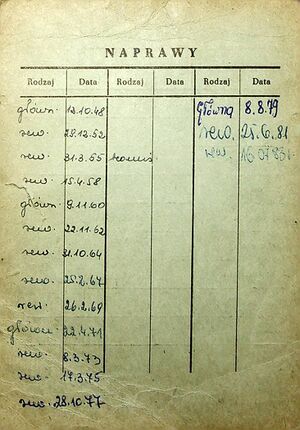 NAPRAWY
Rodzaj Data Rodzaj Data Rodzaj Data
główn. 12.10.48 Główna 8.8.79
rew. 29.12.52 rew. 25.6.81
rew. 31.3.55 rew. 16.07.83
rew. 15.4.58
główn. 9.11.60
rew. 22.11.62
rew. 31.10.64
rew. 25.2.67
rew. 26.2.69
główna 22.4.71
rew. 8.3.73
rew. 17.3.75
rew. 28.10.77